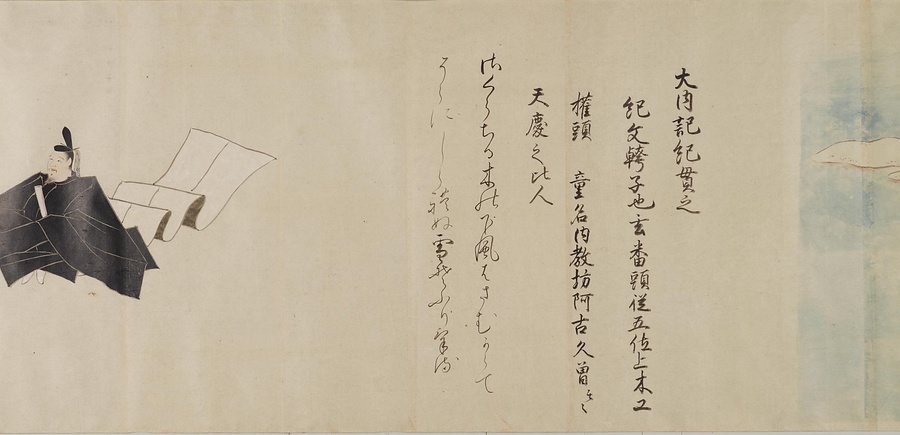 大内記紀貫之
紀文幹子也玄番頭従五位上木工
権頭 童名内教坊阿古久曽云々
天慶之比人
さくらちる木の下風はさむからて
そらにしられぬ雪そふりける